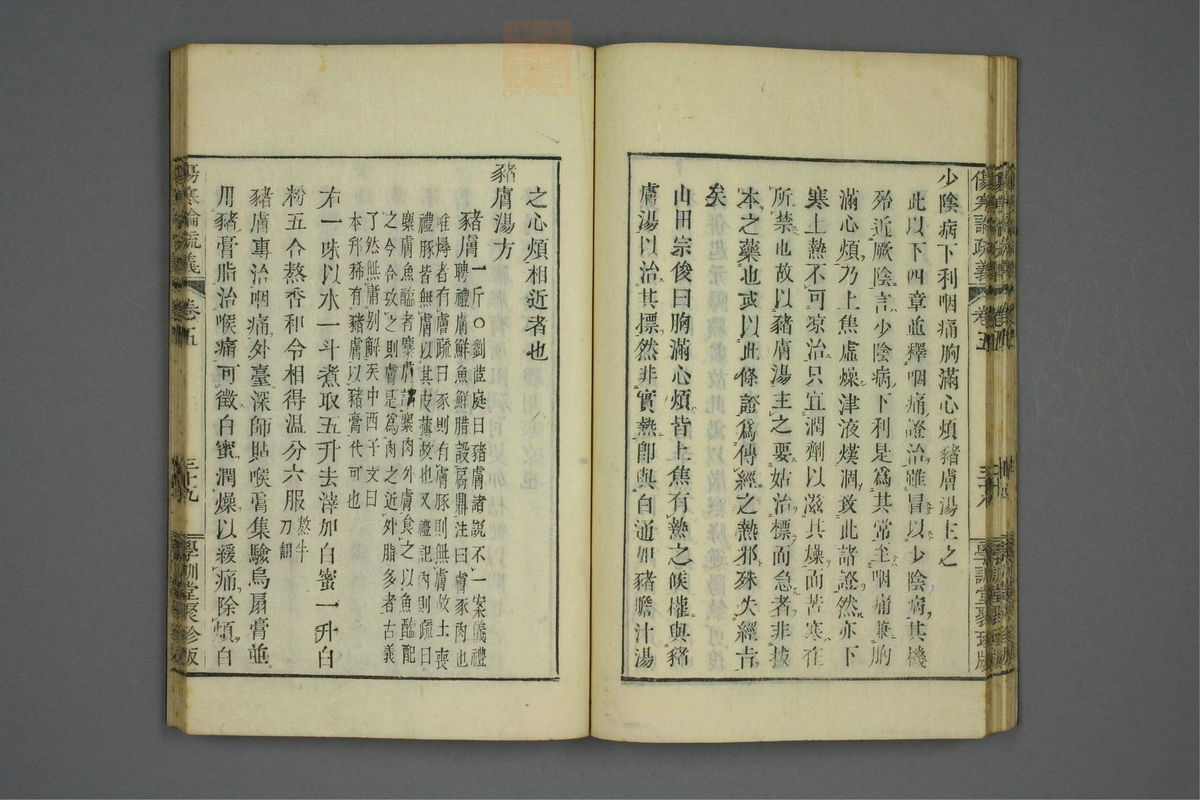 少陰病下利咽痛胸滿心煩豬膚湯主之
此以下四章竝釋咽痛證治雖冒以少陰病其機
殆近厥陰言少陰病下利是爲其常至咽痛兼胸
滿心煩乃上焦虛燥津液㷼涸致此諸證然亦下
寒上熱不可凉治只宜潤劑以滋其燥而苦寒在
所禁也故以豬膚湯主之要姑治標而急者非拔
本之藥也或以此條證爲傳經之熱邪殊失經旨
矣
山田宗俊曰胸滿心煩皆上焦有熱之候權與豬
膚湯以治其標然非實熱卽與白通加豬膽汁湯
之心煩相近者也
豬膚湯方
豬膚一斤○劉茝庭曰豬膚諸說不一案儀禮
聘禮膚鮮魚鮮腊設扃鼎注曰膚豕肉也
唯燖者有膚疏曰豕則有膚豚則無膚故士喪
禮豚皆無膚以其皮薄故也又禮記內則疏曰
麋膚魚醢者麋膚謂麋肉外膚食之以魚醢配
之今合攷之則膚是爲肉之近外脂多者古義
了然無庸別解矣中西子文曰
本邦稀有豬膚以豬膏代可也
右一味以水一斗煮取五升去滓加白蜜一升白
粉五合熬香和令相得溫分六服
豬膚專治咽痛外臺深師貼喉膏集驗烏扇膏竝
用豬膏脂治喉痛可徵白蜜潤燥以緩痛除煩白
傷寒論疏義
卷五
三十九
學訓堂聚珍版